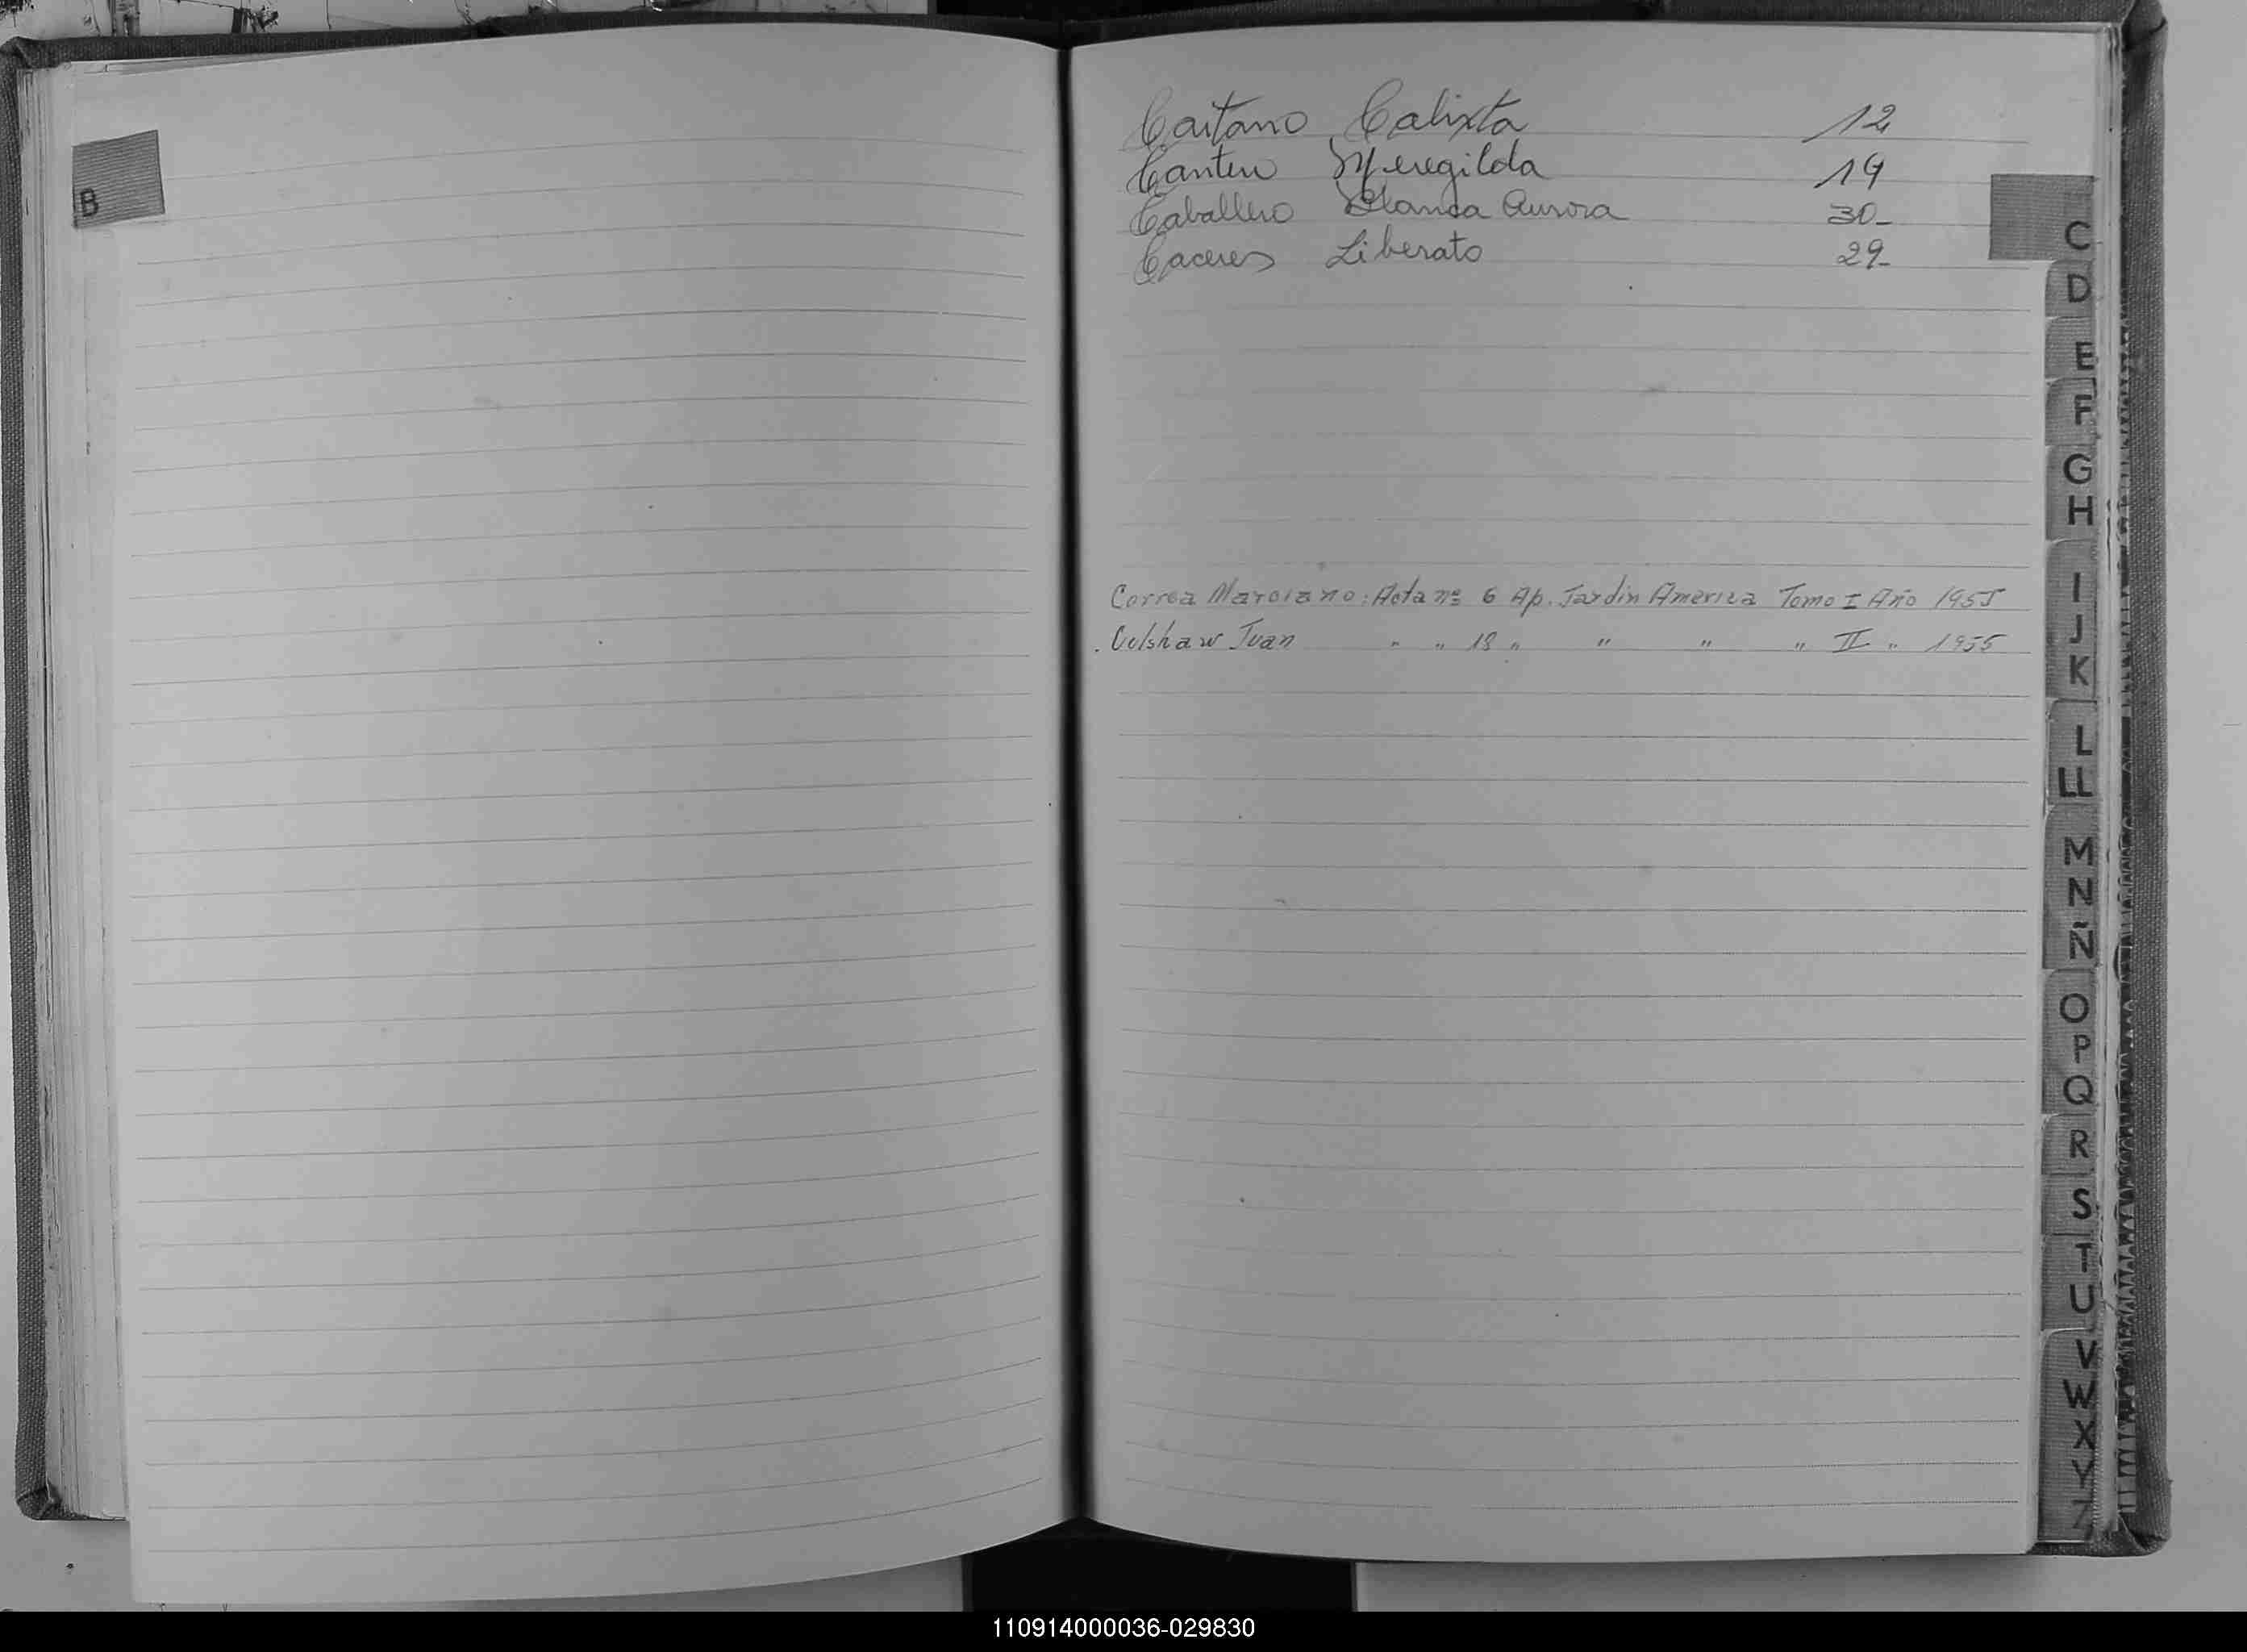 B
Caitano Calixta 12
Cantero Meregilda 19
Caballero Blanca Aurora 30-
Caceres Liberato 29-
Correa Marciano: Acta nº 6 Ap. Jardin America Tomo I Año 1955
Culshaw Juan " " 18 " " " " II " 1955
C
D
E
F
G
H
I
J
K
L
LL
M
N
Ñ
O
P
Q
R
S
T
U
V
W
X
Y
Z
110914000036-029830